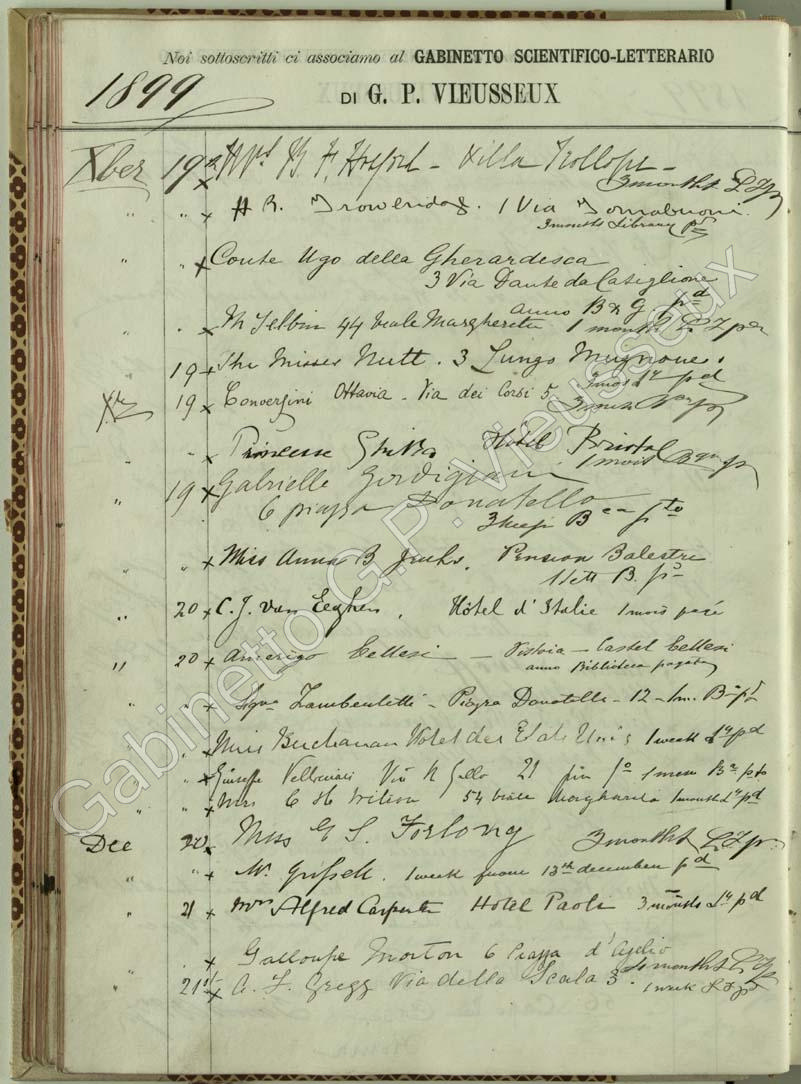 Noi sottoscritti ci associamo al GABINETTO SCIENTIFICO-LETTERARIO
1899
DI G. P. VIEUSSEUX
Xber 19 x B. F. Horford - Villa Trollope -
3 months L J p
" " x H. R. Trowbridge. 1 Via Tornabuoni.
3 months Library pd
" " x Conte Ugo della Gherardesca
3 Via Dante da Castiglione
anno B & G pd
" x 44 Viale Margherita 1 month L J pd
19 x The Misses Nutt. 3 Lungo Mugnone.
3 mos Ly pd
Xbre 19 x Conversini Ottavia - Via dei Corsi 5
" x Princesse Ghika Hôtel Bristol
1 mois
" 19 x Gabrielle Gordigiani
6 piazza Donatello
3 B ca pto
" " x Miss Anna B. Jenks. Pension Balestri
1 sett B. pd
" 20 x C. J. van Eeghen, Hôtel d'Italie 1 mois payé
" 20 x Amerigo Cellesi - Pistoia - Castel Cellesi
anno Biblioteca pagata
" " x Sigra Zambeletti - Piazza Donatello - 12 -
" " x Miss Buchanan Hotel des Etats Unis 1 week Ly pd
" x Giuseppe Via N Gallo 21 1 mese Ba pto
" " x Mrs C H Wilson 54 viale Margherita 1 month Ly pd
Dec 20 x Miss G S. Forlong 3 months L J p.
" " x 1 week from 13th december pd
" 21 x Mrs Alfred Carpenter Hotel Paoli 3 months Ly pd
" x Galloupe Morton 6 Piazza d'Azelio
4 months
" 21st x A. F. Gregg Via della Scala 3.
1 week
Gabinetto G.P. Vieusseux